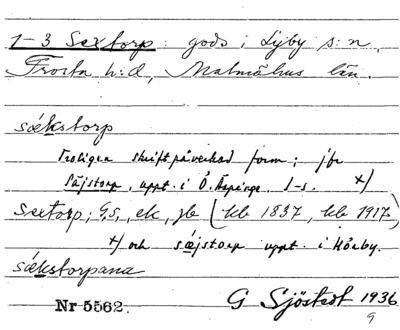 1-3 Sextorp: gods i Lyby s:n,
Frosta h:d, Malmöhus län.
sækstorp
Troligen skriftpåverkad form; jfr
Säjstorp, uppt. i Ö. Äspinge. I-s. x)
Sextorp; GS, ek, jb (kb 1837, kb 1917)
x) och sæjstorp uppt. i Hörby.
sækstorpana
Nr 5562. G Sjöstedt 1936
9